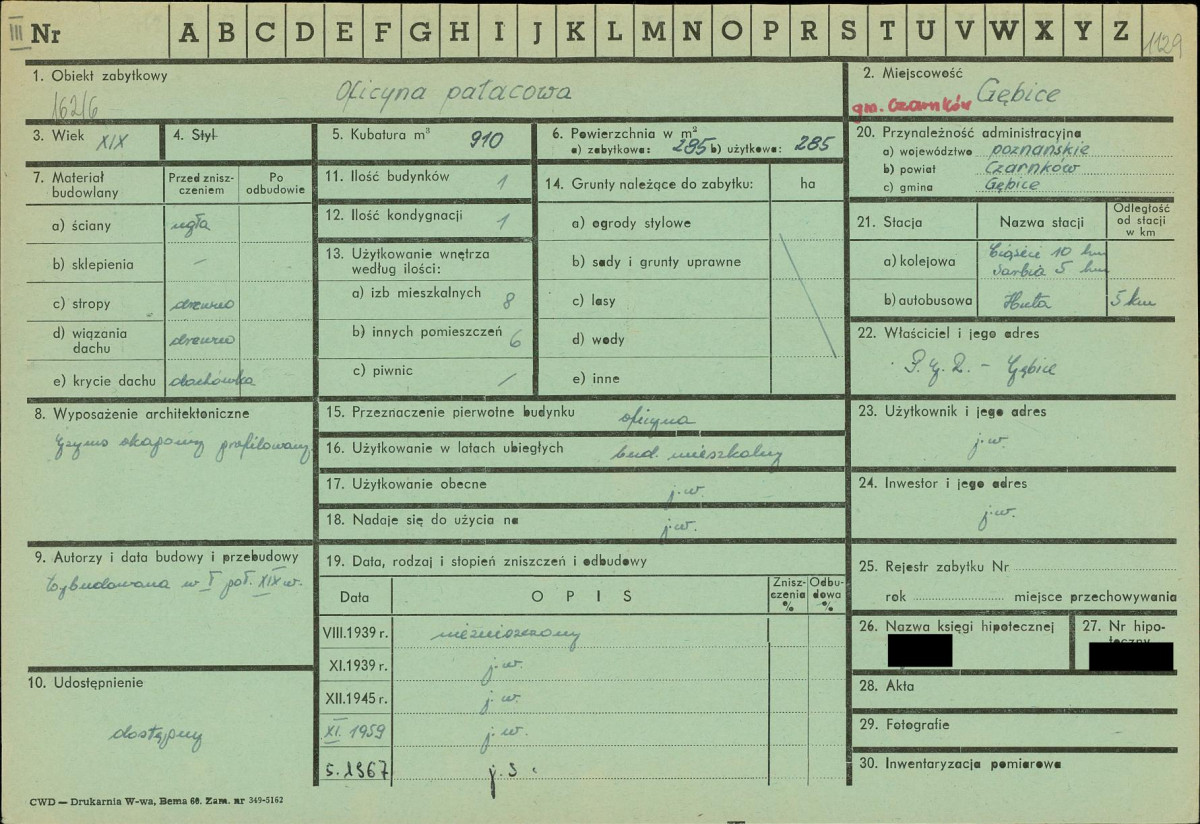 III Nr A B C D E F G H I J K L M N O P R S T U V W X Y Z 1129
1. Obiekt zabytkowy
162/6 Oficyna pałacowa
2. Miejscowość
gm. Czarnków Gębice
3. Wiek XIX
4. Styl
5. Kubatura m³ 910
6. Powierzchnia w m²
a) zabytkowa: 285 b) użytkowa: 285
7. Materiał budowlany
Przed znisz-
czeniem
Po
odbudowie
a) ściany cegła
b) sklepienia —
c) stropy drewno
d) wiązania
dachu drewno
e) krycie dachu dachówka
8. Wyposażenie architektoniczne
gzyms okapowy profilowany
9. Autorzy i data budowy i przebudowy
Wybudowana w I poł. XIX w.
10. Udostępnienie
dostępny
11. Ilość budynków 1
12. Ilość kondygnacji 1
13. Użytkowanie wnętrza
według ilości:
a) izb mieszkalnych 8
b) innych pomieszczeń 6
c) piwnic /
14. Grunty należące do zabytku: ha
a) ogrody stylowe
b) sady i grunty uprawne
c) lasy
d) wody
e) inne
15. Przeznaczenie pierwotne budynku oficyna
16. Użytkowanie w latach ubiegłych bud. mieszkalny
17. Użytkowanie obecne j.w.
18. Nadaje się do użycia na j.w.
19. Data, rodzaj i stopień zniszczeń i odbudowy
Data OPIS
Znisz-
czenia
%
Odbu-
dowa
-%
VIII.1939 r. niezniszczony
XI.1939 r. j.w.
XII.1945 r. j.w.
XI. 1959 j.w.
5.1967 j.s.
20. Przynależność administracyjna
a) województwo poznańskie
b) powiat Czarnków
c) gmina Gębice
21. Stacja Nazwa stacji
Odległość
od stacji
w km
a) kolejowa 10 km
Sarbia 5 km
b) autobusowa Huta 5 km
22. Właściciel i jego adres
P.G.R. - Gębice
23. Użytkownik i jego adres
j.w.
24. Inwestor i jego adres
j.w.
25. Rejestr zabytku Nr
rok miejsce przechowywania
26. Nazwa księgi hipotecznej
27. Nr hipo-
teczny
28. Akta
29. Fotografie
30. Inwentaryzacja pomiarowa
CWD — Drukarnia W-wa, Bema 60. Zam. nr 349-5162